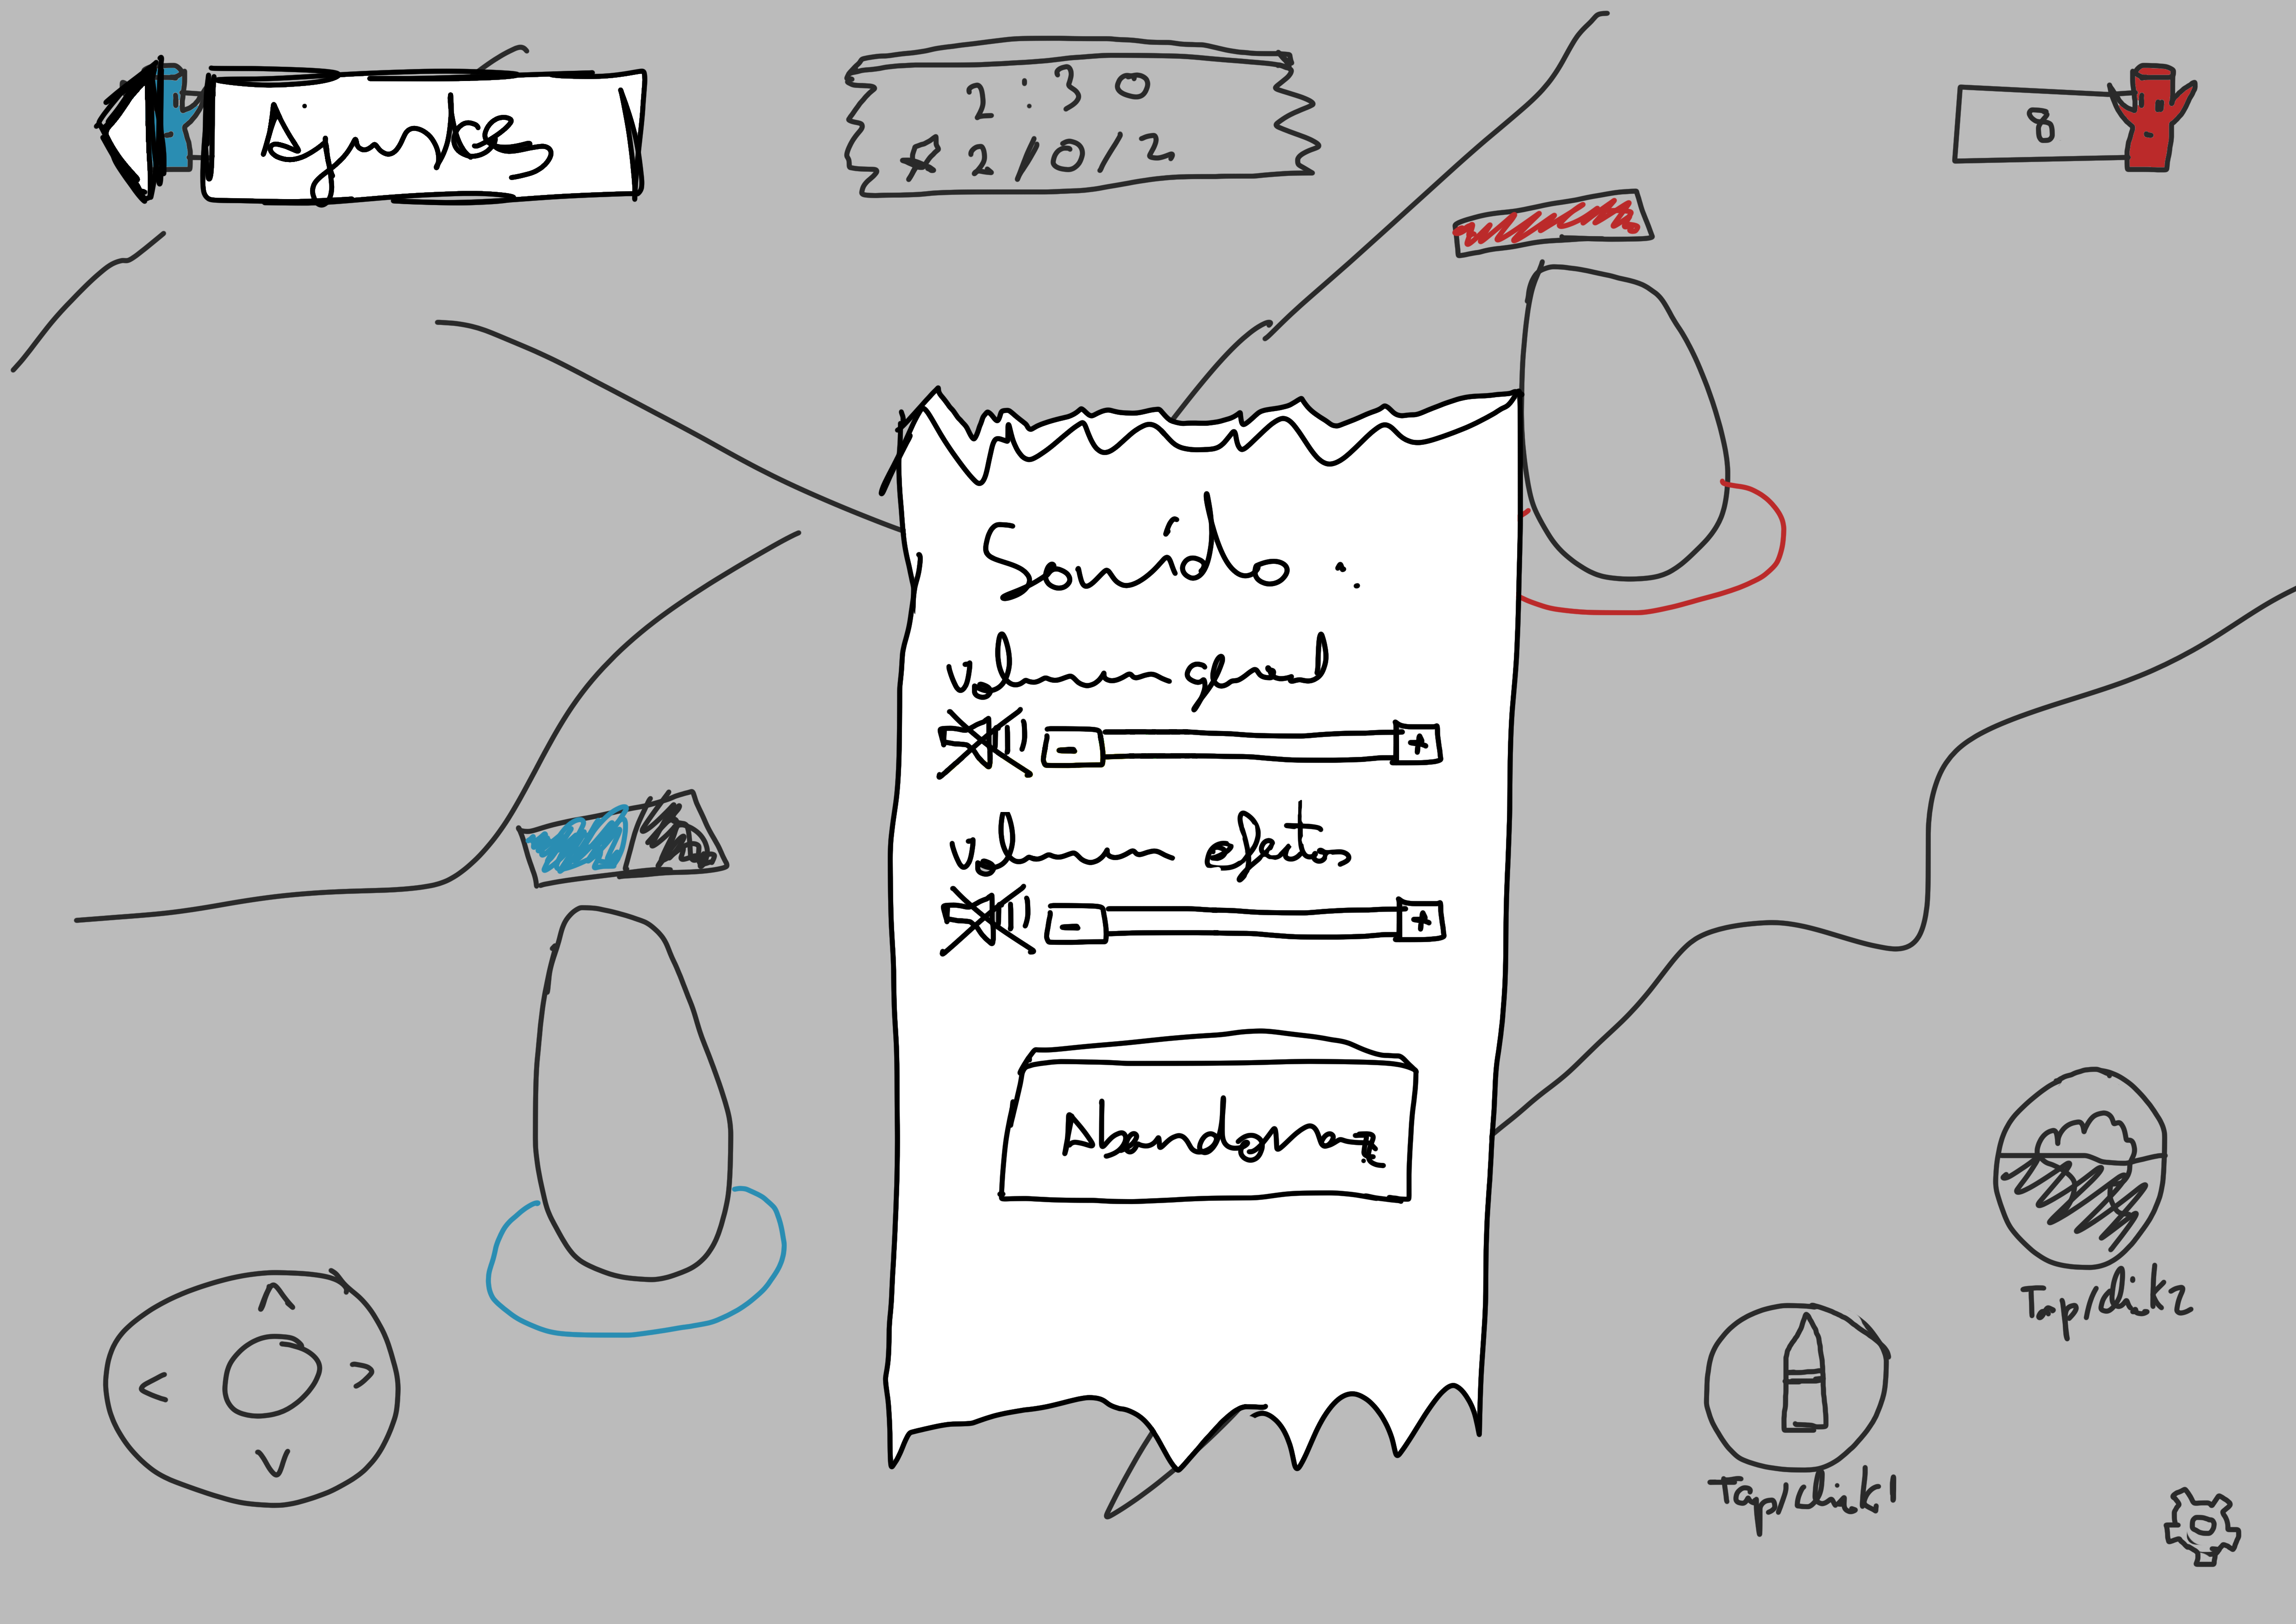 Ajustes
2:30
K 2/0/2
8
Sonido:
volumen general
-
+
volumen efectos
-
+
Abandonar
Tap/click2
Tap/click1